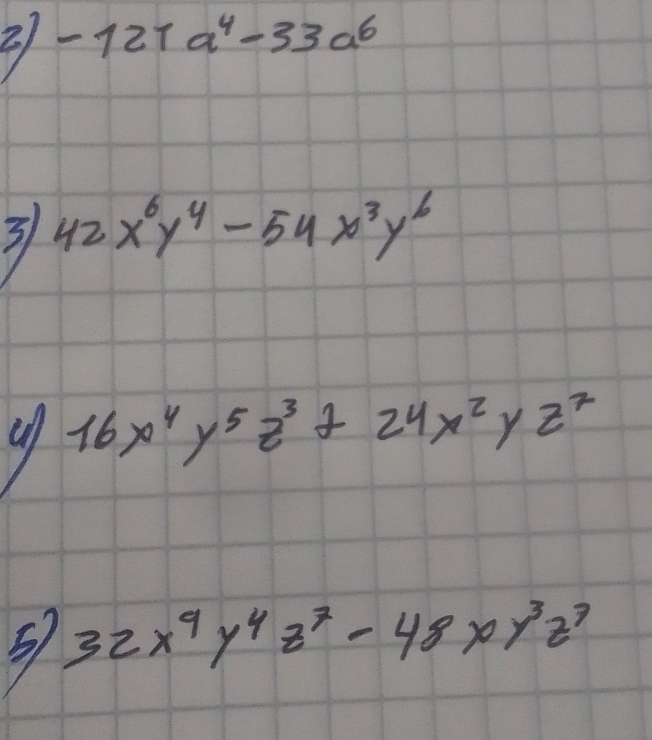 2) -121a⁴-33a⁶
3) 42x⁶y⁴-54x³y⁶
4) 16x⁴y⁵z³+24x²yz⁷
5) 32x⁹y⁴z⁷-48xy³z⁷